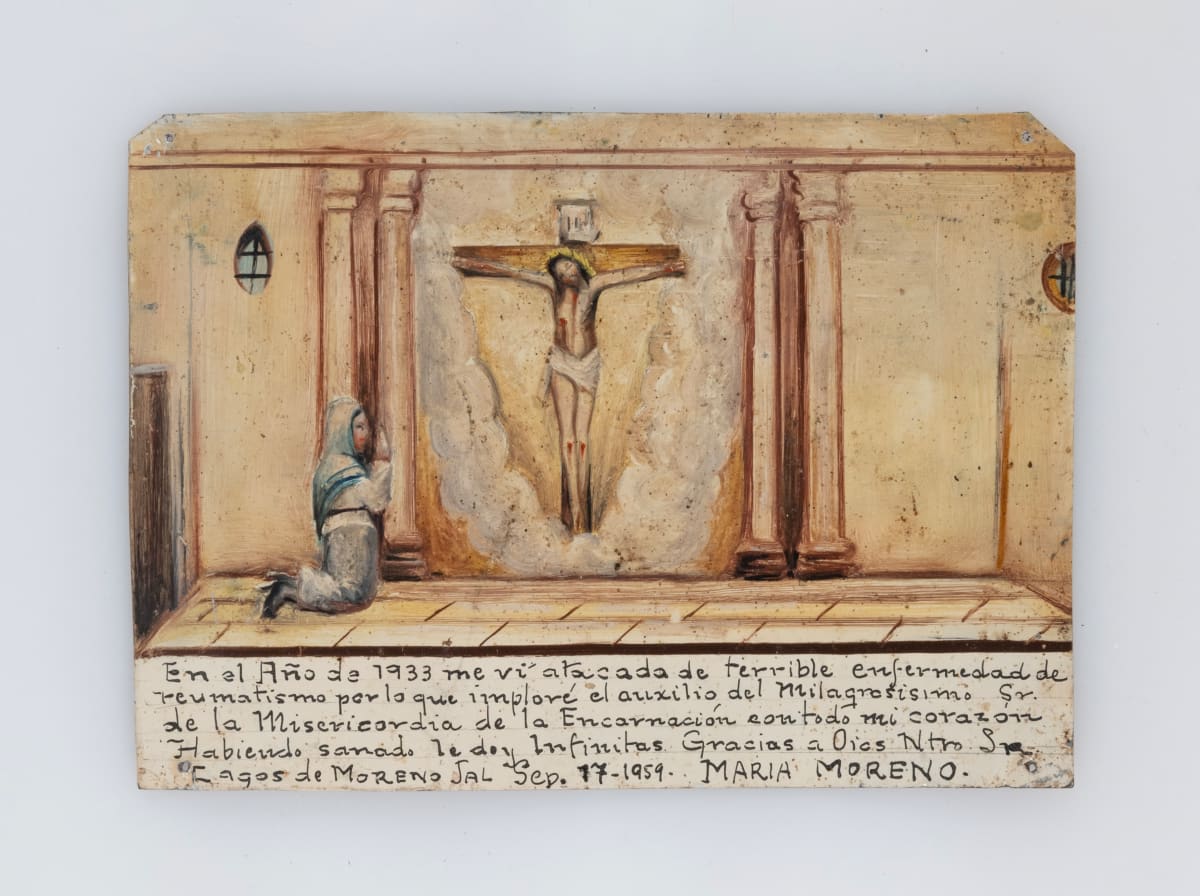 En el Año de 1933 me ví atacada de terrible enfermedad de
reumatismo por lo que imploré el auxilio del Milagrosisimo Sr.
de la Misericordia de la Encarnación con todo mi corazón
Habiendo sanado le doy Infinitas Gracias a Dios Ntro Sr.
Lagos de MORENO JAL Sep. 17-1959. MARIA MORENO.